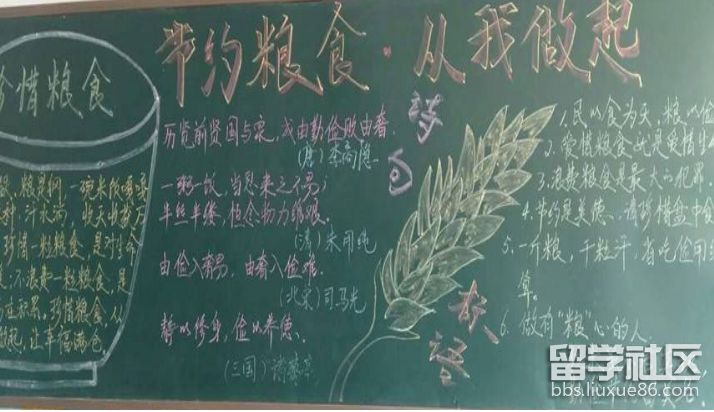 节约粮食·从我做起
珍惜粮食
历览前贤国与家，成由勤俭败由奢。
(唐) 李商隐
一粥一饭，当思来之不易；
半丝半缕，恒念物力维艰。
(清) 朱用纯
由俭入奢易，由奢入俭难。
(北宋) 司马光
静以修身，俭以养德。
(三国) 诸葛亮
1. 民以食为天，粮以俭
2. 爱惜粮食就是爱惜生
3. 浪费粮食是最大的犯罪。
4. 节约是美德，请珍惜盘中食
5. 一个粮，千粒汗，省吃俭用
算。
6. 做有“粮”心的人。
珍惜一粒粮食，是对生命
不浪费一粒粮食，是
珍惜粮食，从
起，让幸福满仓
留学社区
bbs.liuxue86.com